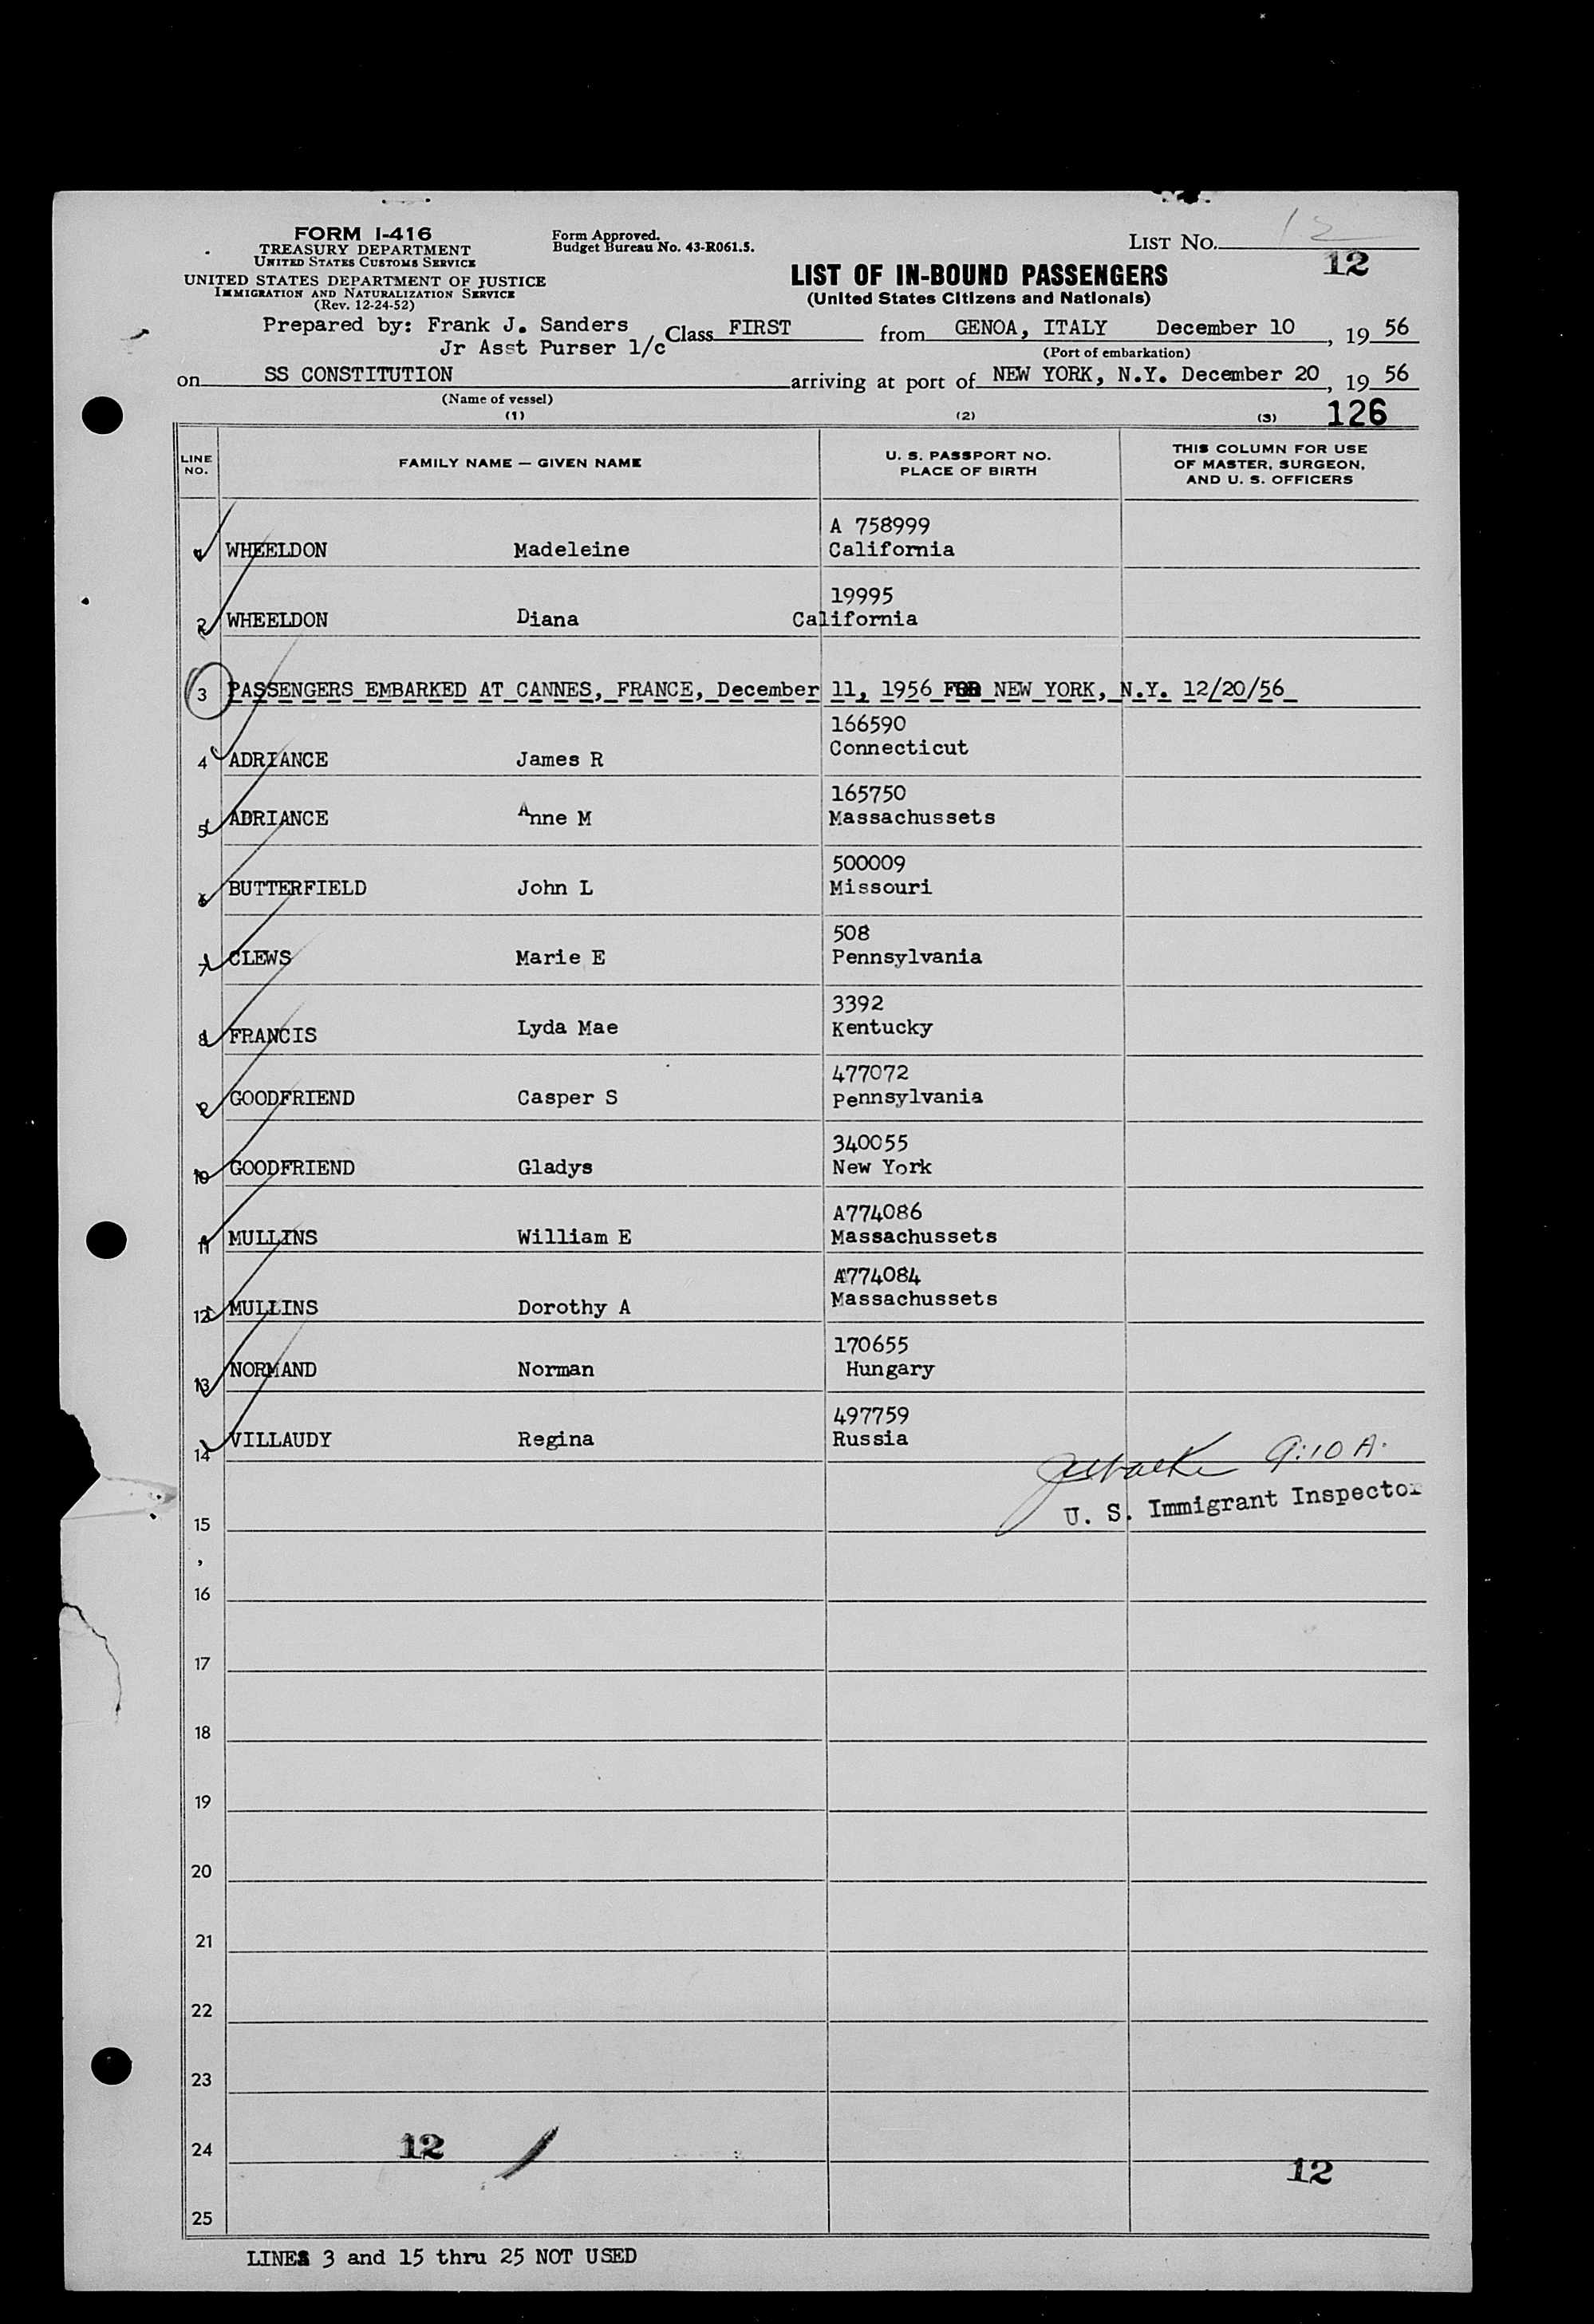 FORM I-416
TREASURY DEPARTMENT
UNITED STATES CUSTOMS SERVICE
UNITED STATES DEPARTMENT OF JUSTICE
IMMIGRATION AND NATURALIZATION SERVICE
(Rev. 12-24-52)
Form Approved.
Budget Bureau No. 43-R061.5.
LIST NO. 12
12
LIST OF IN-BOUND PASSENGERS
(United States Citizens and Nationals)
Prepared by: Frank J. Sanders
Jr Asst Purser 1/c
Class FIRST from GENOA, ITALY December 10, 19 56
(Port of embarkation)
on SS CONSTITUTION arriving at port of NEW YORK, N.Y. December 20, 19 56
(Name of vessel)
(1) (2) (3) 126
LINE NO. FAMILY NAME — GIVEN NAME U. S. PASSPORT NO. PLACE OF BIRTH THIS COLUMN FOR USE OF MASTER, SURGEON, AND U. S. OFFICERS
A 758999
1 WHEELDON Madeleine California
19995
2 WHEELDON Diana California
3 PASSENGERS EMBARKED AT CANNES, FRANCE, December 11, 1956 FOR NEW YORK, N.Y. 12/20/56
166590
4 ADRIANCE James R Connecticut
165750
5 ADRIANCE Anne M Massachussets
500009
6 BUTTERFIELD John L Missouri
508
7 CLEWS Marie E Pennsylvania
3392
8 FRANCIS Lyda Mae Kentucky
477072
9 GOODFRIEND Casper S Pennsylvania
340055
10 GOODFRIEND Gladys New York
A774086
11 MULLINS William E Massachussets
A774084
12 MULLINS Dorothy A Massachussets
170655
13 NORMAND Norman Hungary
497759
14 VILLAUDY Regina Russia
9:10 A.
U. S. Immigrant Inspector
15
16
17
18
19
20
21
22
23
24 12
12
25
LINES 3 and 15 thru 25 NOT USED